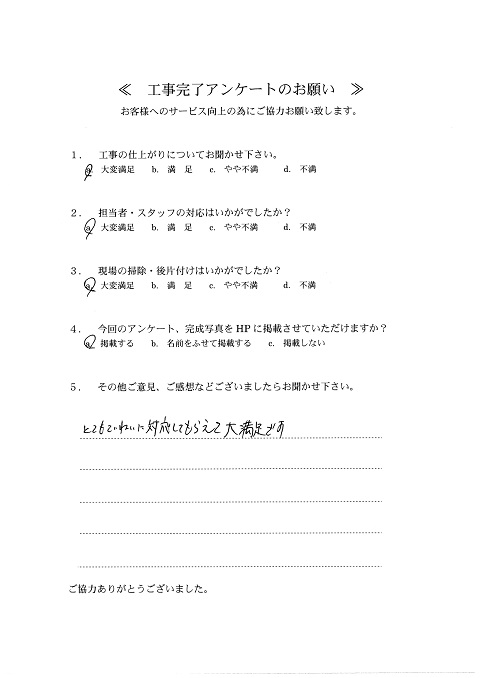 ≪ 工事完了アンケートのお願い ≫
お客様へのサービス向上の為にご協力お願い致します。
1. 工事の仕上がりについてお聞かせ下さい。
a. 大変満足 b. 満 足 c. やや不満 d. 不満
2. 担当者・スタッフの対応はいかがでしたか？
a. 大変満足 b. 満 足 c. やや不満 d. 不満
3. 現場の掃除・後片付けはいかがでしたか？
a. 大変満足 b. 満 足 c. やや不満 d. 不満
4. 今回のアンケート、完成写真を HP に掲載させていただけますか？
a. 掲載する b. 名前をふせて掲載する c. 掲載しない
5. その他ご意見、ご感想などございましたらお聞かせ下さい。
とてもていねいに対応してもらえて大満足です
ご協力ありがとうございました。